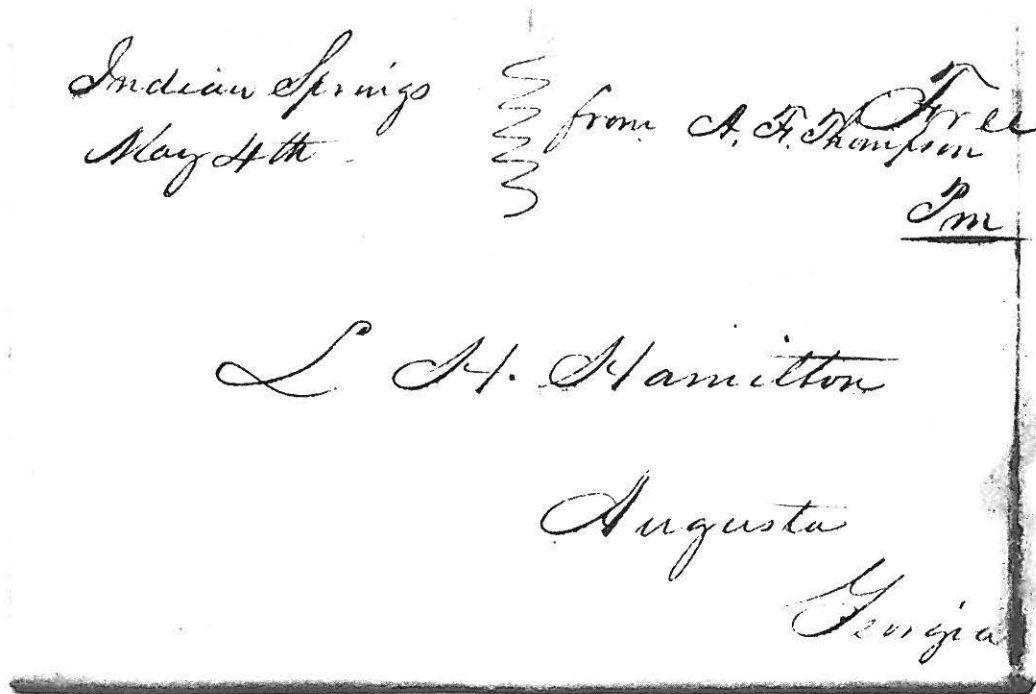 Indian Springs
May 4th
from A. F. Thompson
Free
Pm
L H. Hamilton
Augusta
Georgia